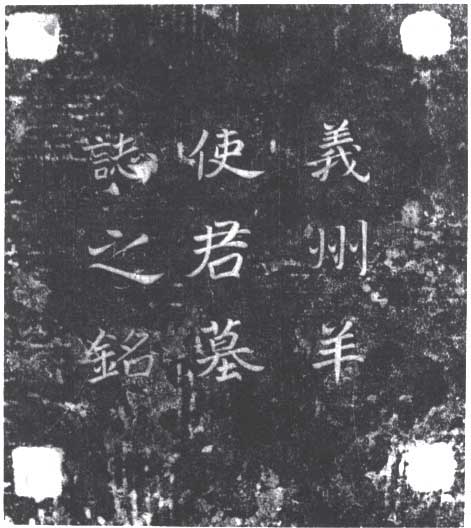 義州羊
使君墓
誌之銘